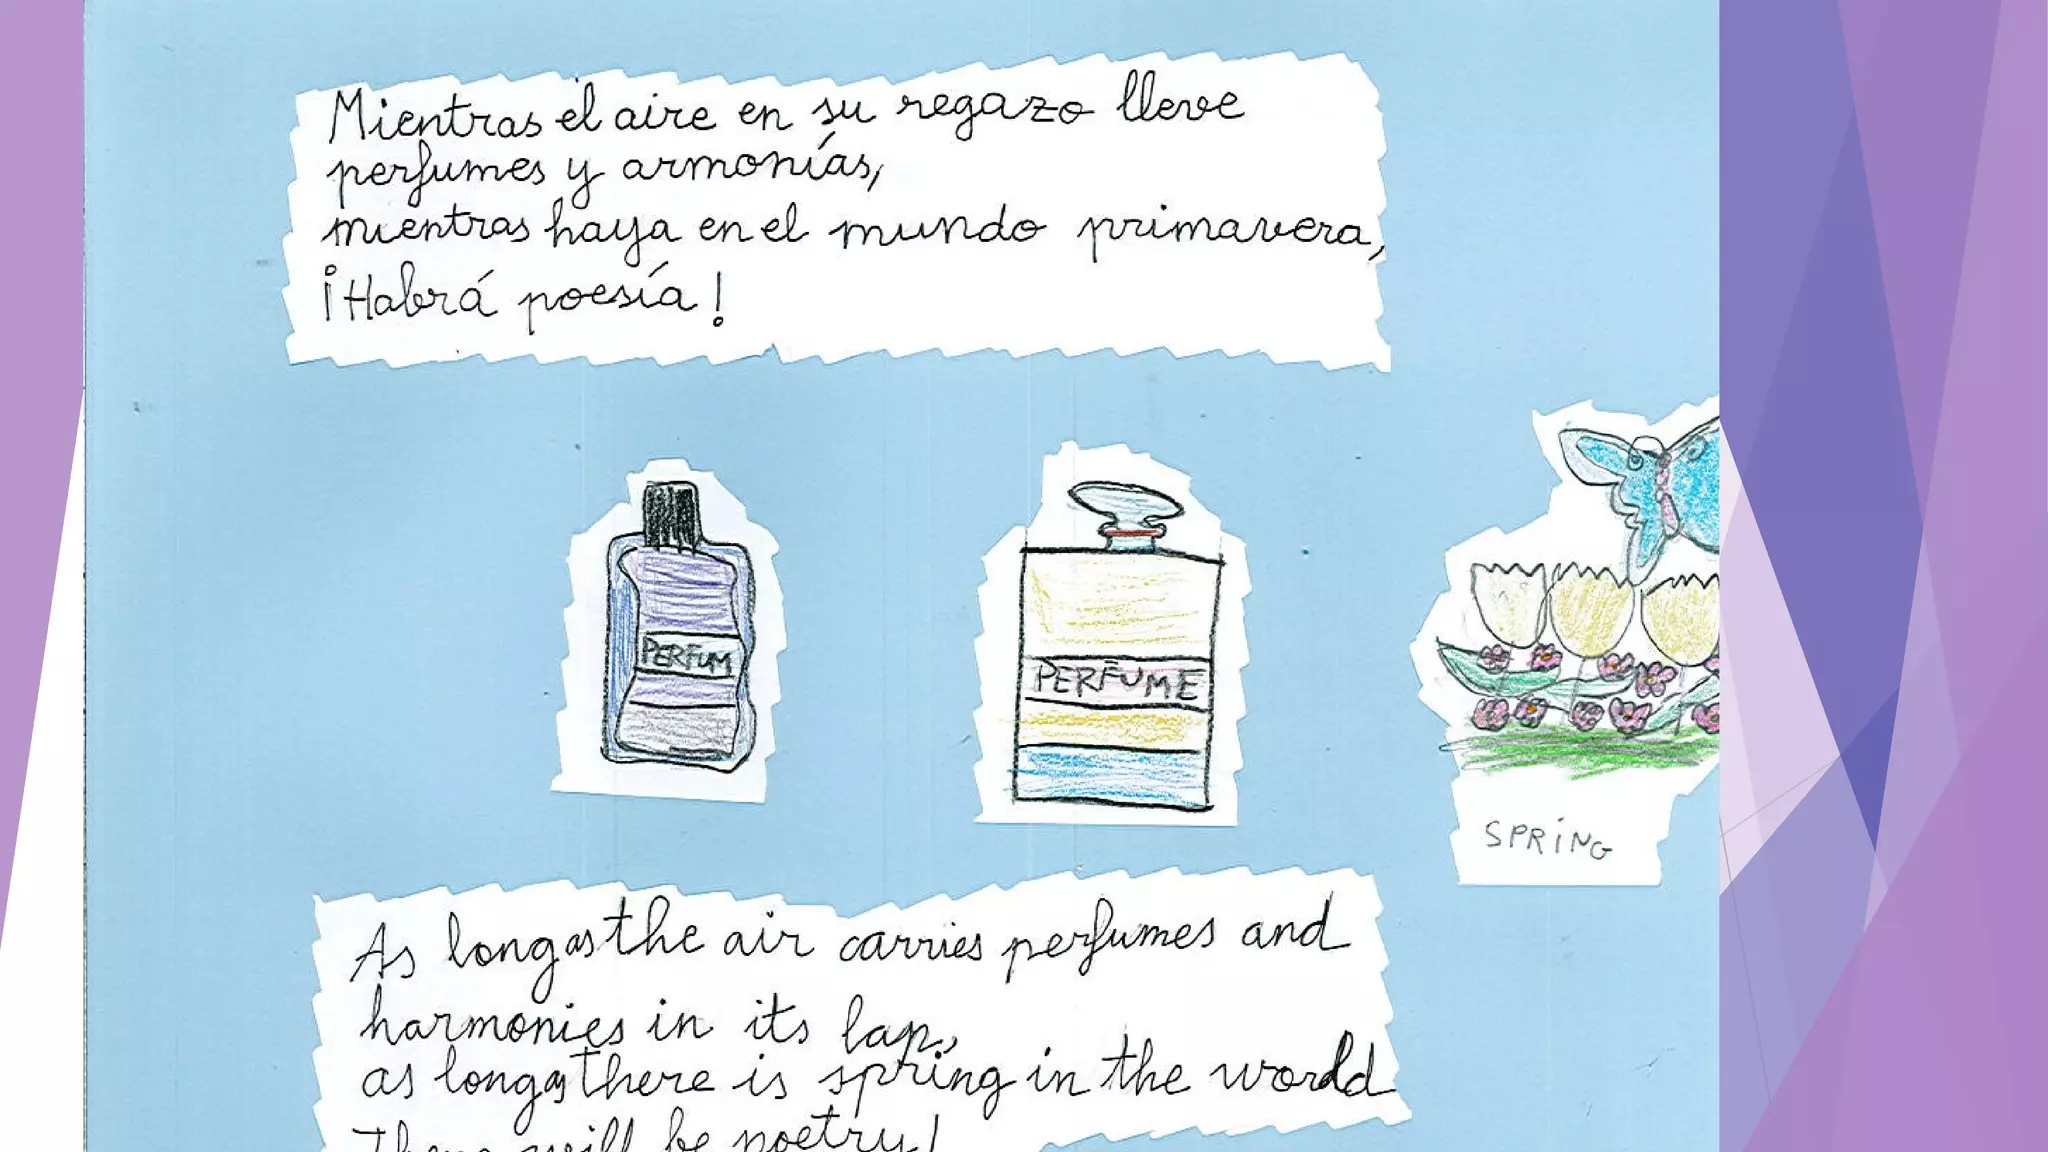 Mientras el aire en su regazo lleve
perfumes y armonías,
mientras haya en el mundo primavera,
¡Habrá poesía!
PERFUM
PERFUME
SPRING
As long as the air carries perfumes and
harmonies in its lap,
as long as there is spring in the world
There will be poetry!